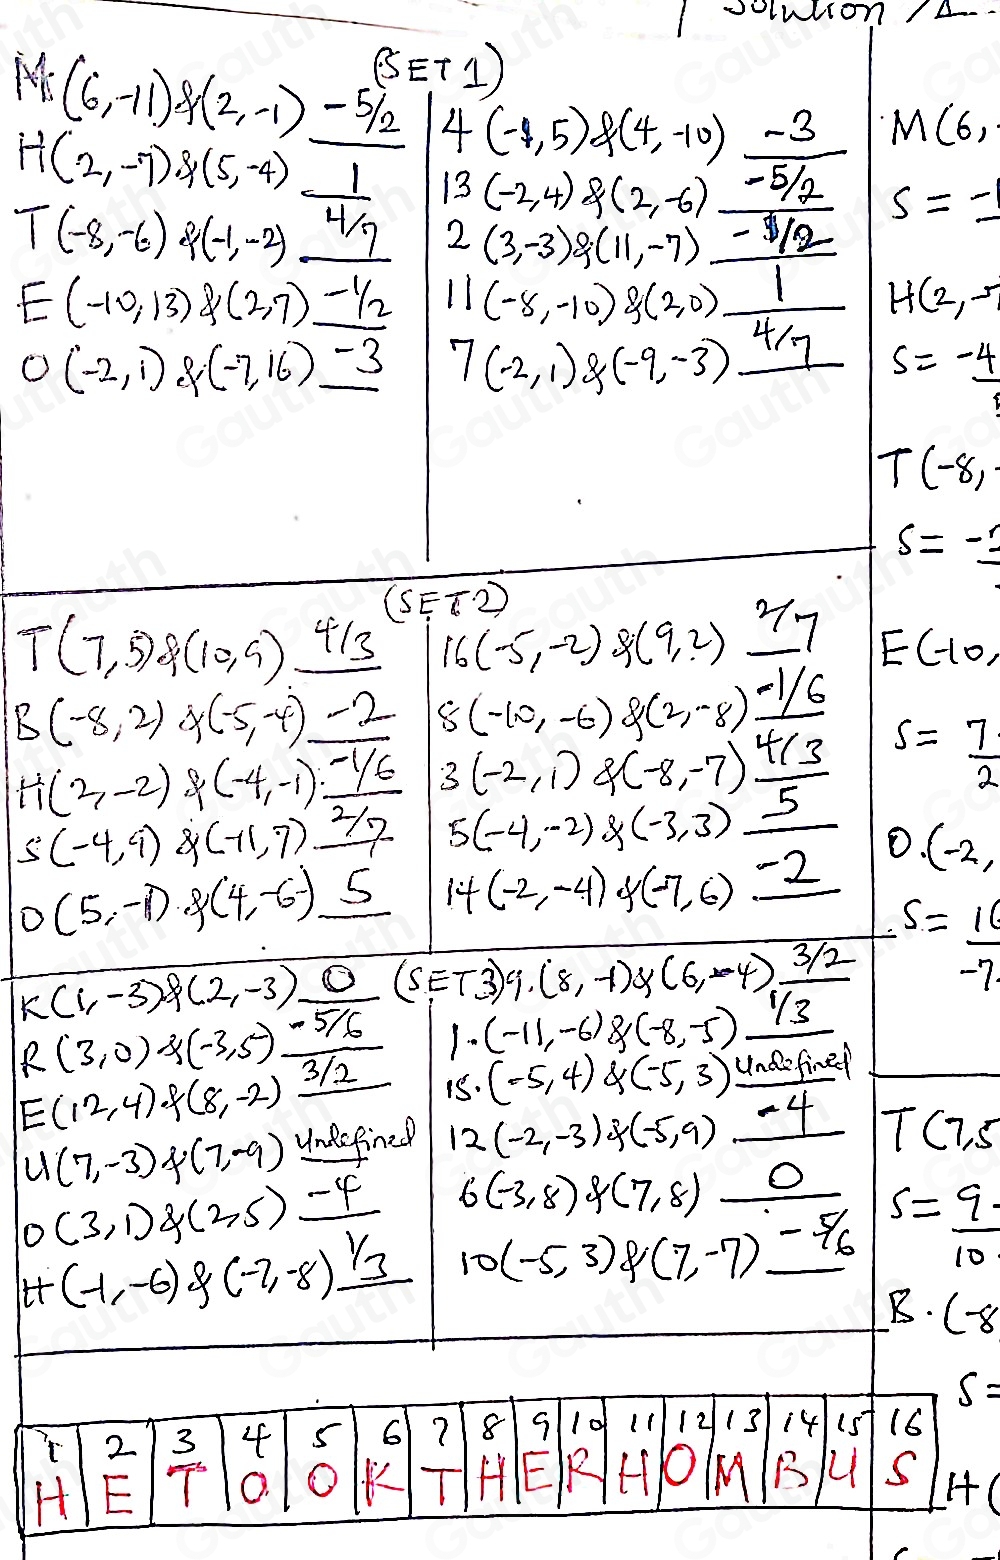 Solution
(SET 1)
M (6,-11) & (2,-1) -5/2
H (2,-7) & (5,-4) 1
T (-8,-6) & (-1,-2) 4/7
E (-10,13) & (2,7) -1/2
O (-2,1) & (-7,16) -3
4 (-1,5) & (4,-10) -3
13 (-2,4) & (2,-6) -5/2
2 (3,-3) & (11,-7) -1/2
11 (-8,-10) & (2,0) 1
7 (-2,1) & (-9,-3) 4/7
(SET 2)
T (7,5) & (10,9) 4/3
B (-8,2) & (-5,-4) -2
H (2,-2) & (-4,-1) -1/6
S (-4,9) & (-11,7) 2/7
O (5,-1) & (4,-6) 5
16 (-5,-2) & (9,2) 2/7
8 (-10,-6) & (2,-8) -1/6
3 (-2,1) & (-8,-7) 4/3
5 (-4,-2) & (-3,3) 5
14 (-2,-4) & (-7,6) -2
(SET 3)
K (1,-3) & (2,-3) 0
R (3,0) & (-3,5) -5/6
E (12,4) & (8,-2) 3/2
U (7,-3) & (7,-9) Undefined
O (3,1) & (2,5) -4
H (-1,-6) & (-7,-8) 1/3
9. (8,-1) & (6,-4) 3/2
1. (-11,-6) & (-8,-5) 1/3
15. (-5,4) & (-5,3) Undefined
12 (-2,-3) & (-5,9) -4
6 (-3,8) & (7,8) 0
10 (-5,3) & (7,-7) -5/6
1 2 3 4 5 6 7 8 9 10 11 12 13 14 15 16
H E T O O K T H E R H O M B U S
M (6,
S =
H (2,-7
S = -4
T (-8,
S =
E (-10,
S = 7
2
O. (-2,
S = 16
-7
T (7,5
S = 9
10
B. (-8
S =
H (